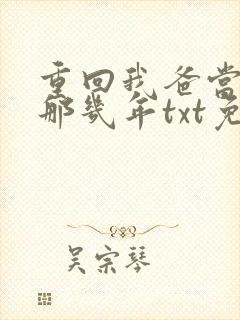 重回我爸当
那几年txt免
吴宗琴